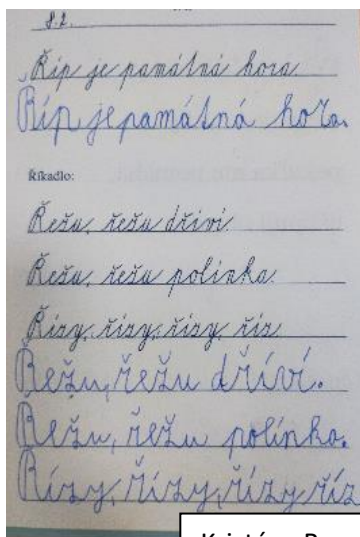 8.2.
Říp je památná hora.
Říp je památná hora.
Říkadlo:
Řežu, řežu dříví.
Řežu, řežu polínka.
Řízy, řízy, řízy, říz.
Řežu, řežu dříví.
Řežu, řežu polínka.
Řízy, řízy, řízy říz